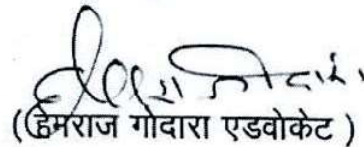 (हेमराज गोदारा एडवोकेट )